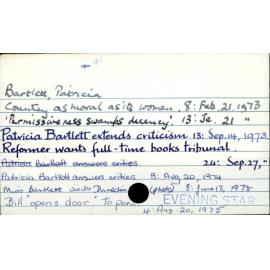 Bartlett, Patricia
Country as moral as its women. 8: Feb. 21, 1973
'Permissiveness swamps decency' 13: Je. 21 "
Patricia Bartlett extends criticism 13: Sep. 14, 1973.
Reformer wants full-time books tribunal.
24: Sep. 27, "
Patricia Bartlett answers critics
Patricia Bartlett answers critics 8: Aug 20, 1974
Miss Bartlett Dunedin (photo) 8: June 13, 1975
Bill 'opens door' to porn
4: Aug 20, 1975
EVENING STAR